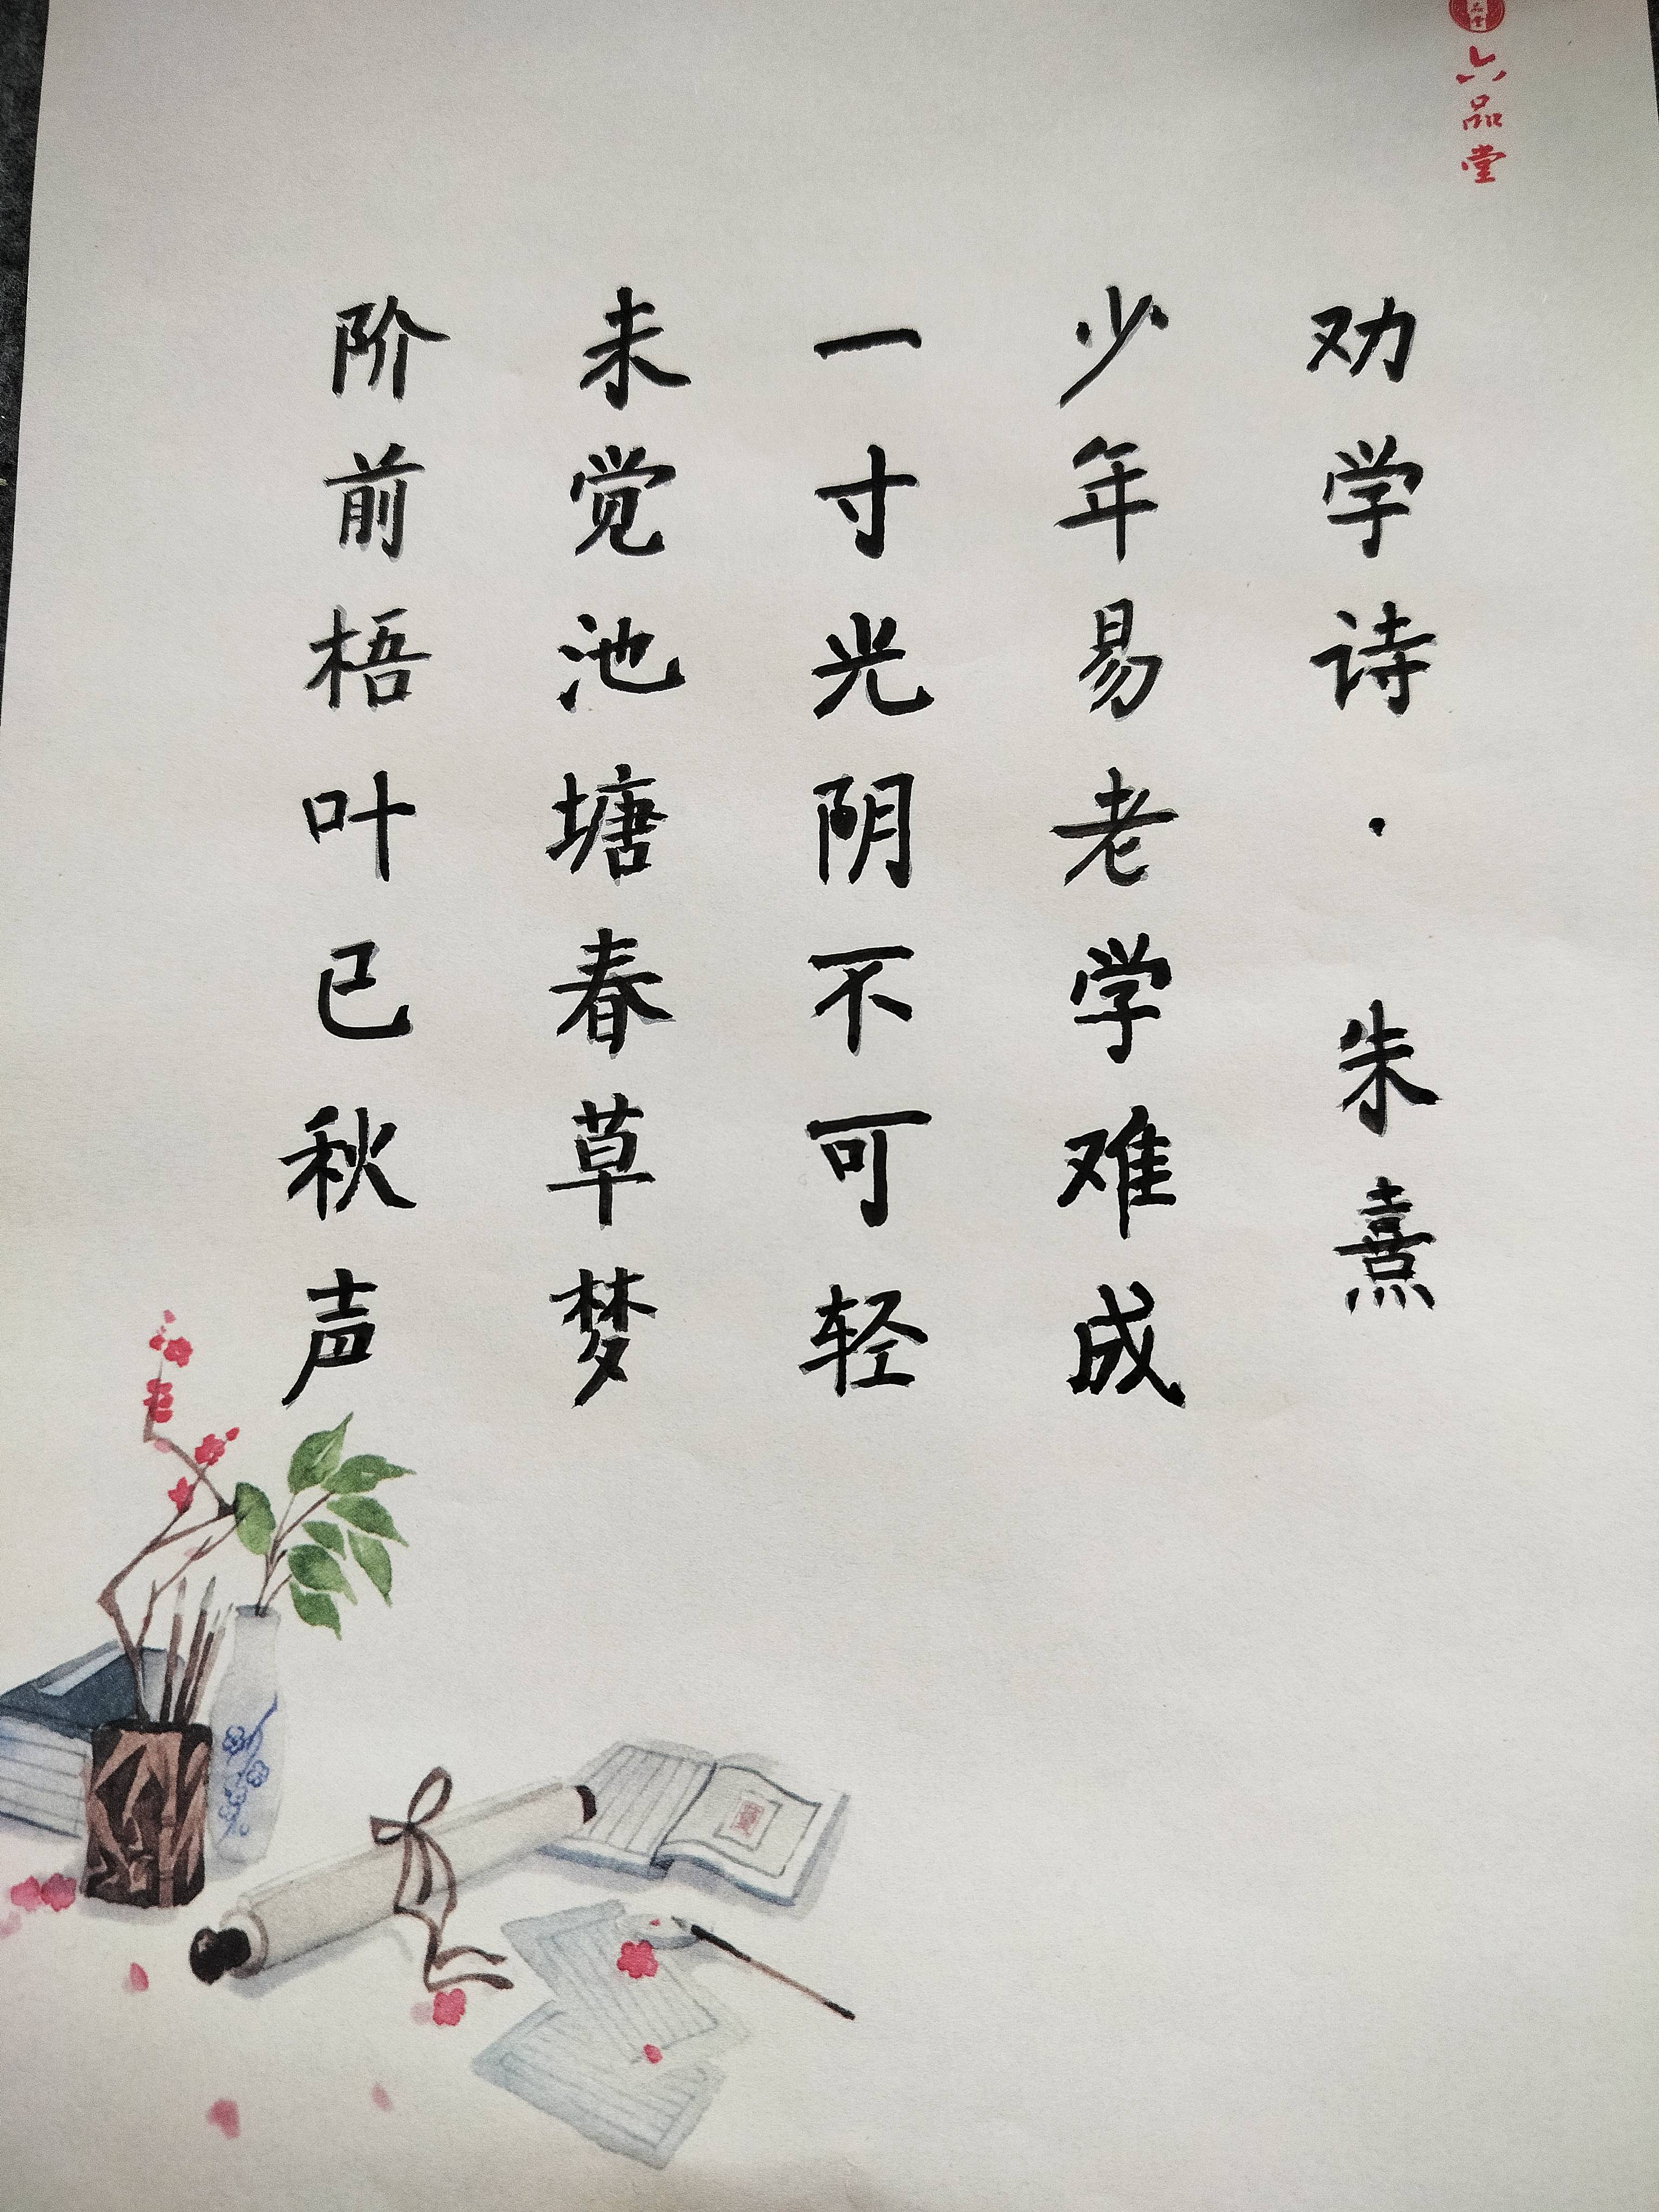 六品堂
劝学诗·朱熹
少年易老学难成
一寸光阴不可轻
未觉池塘春草梦
阶前梧叶已秋声